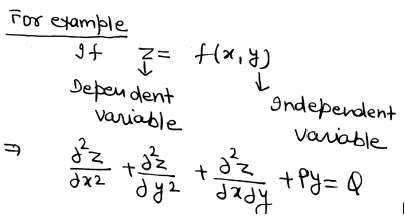 For example
If z = f(x, y)
↓ ↓
Dependent variable
Independent variable
⇒ ∂²z/∂x² + ∂²z/∂y² + ∂²z/∂x∂y + Py = Q